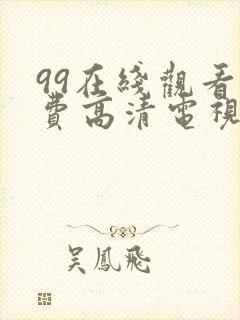 99在綫觀看
費高清電視
吳鳳飛